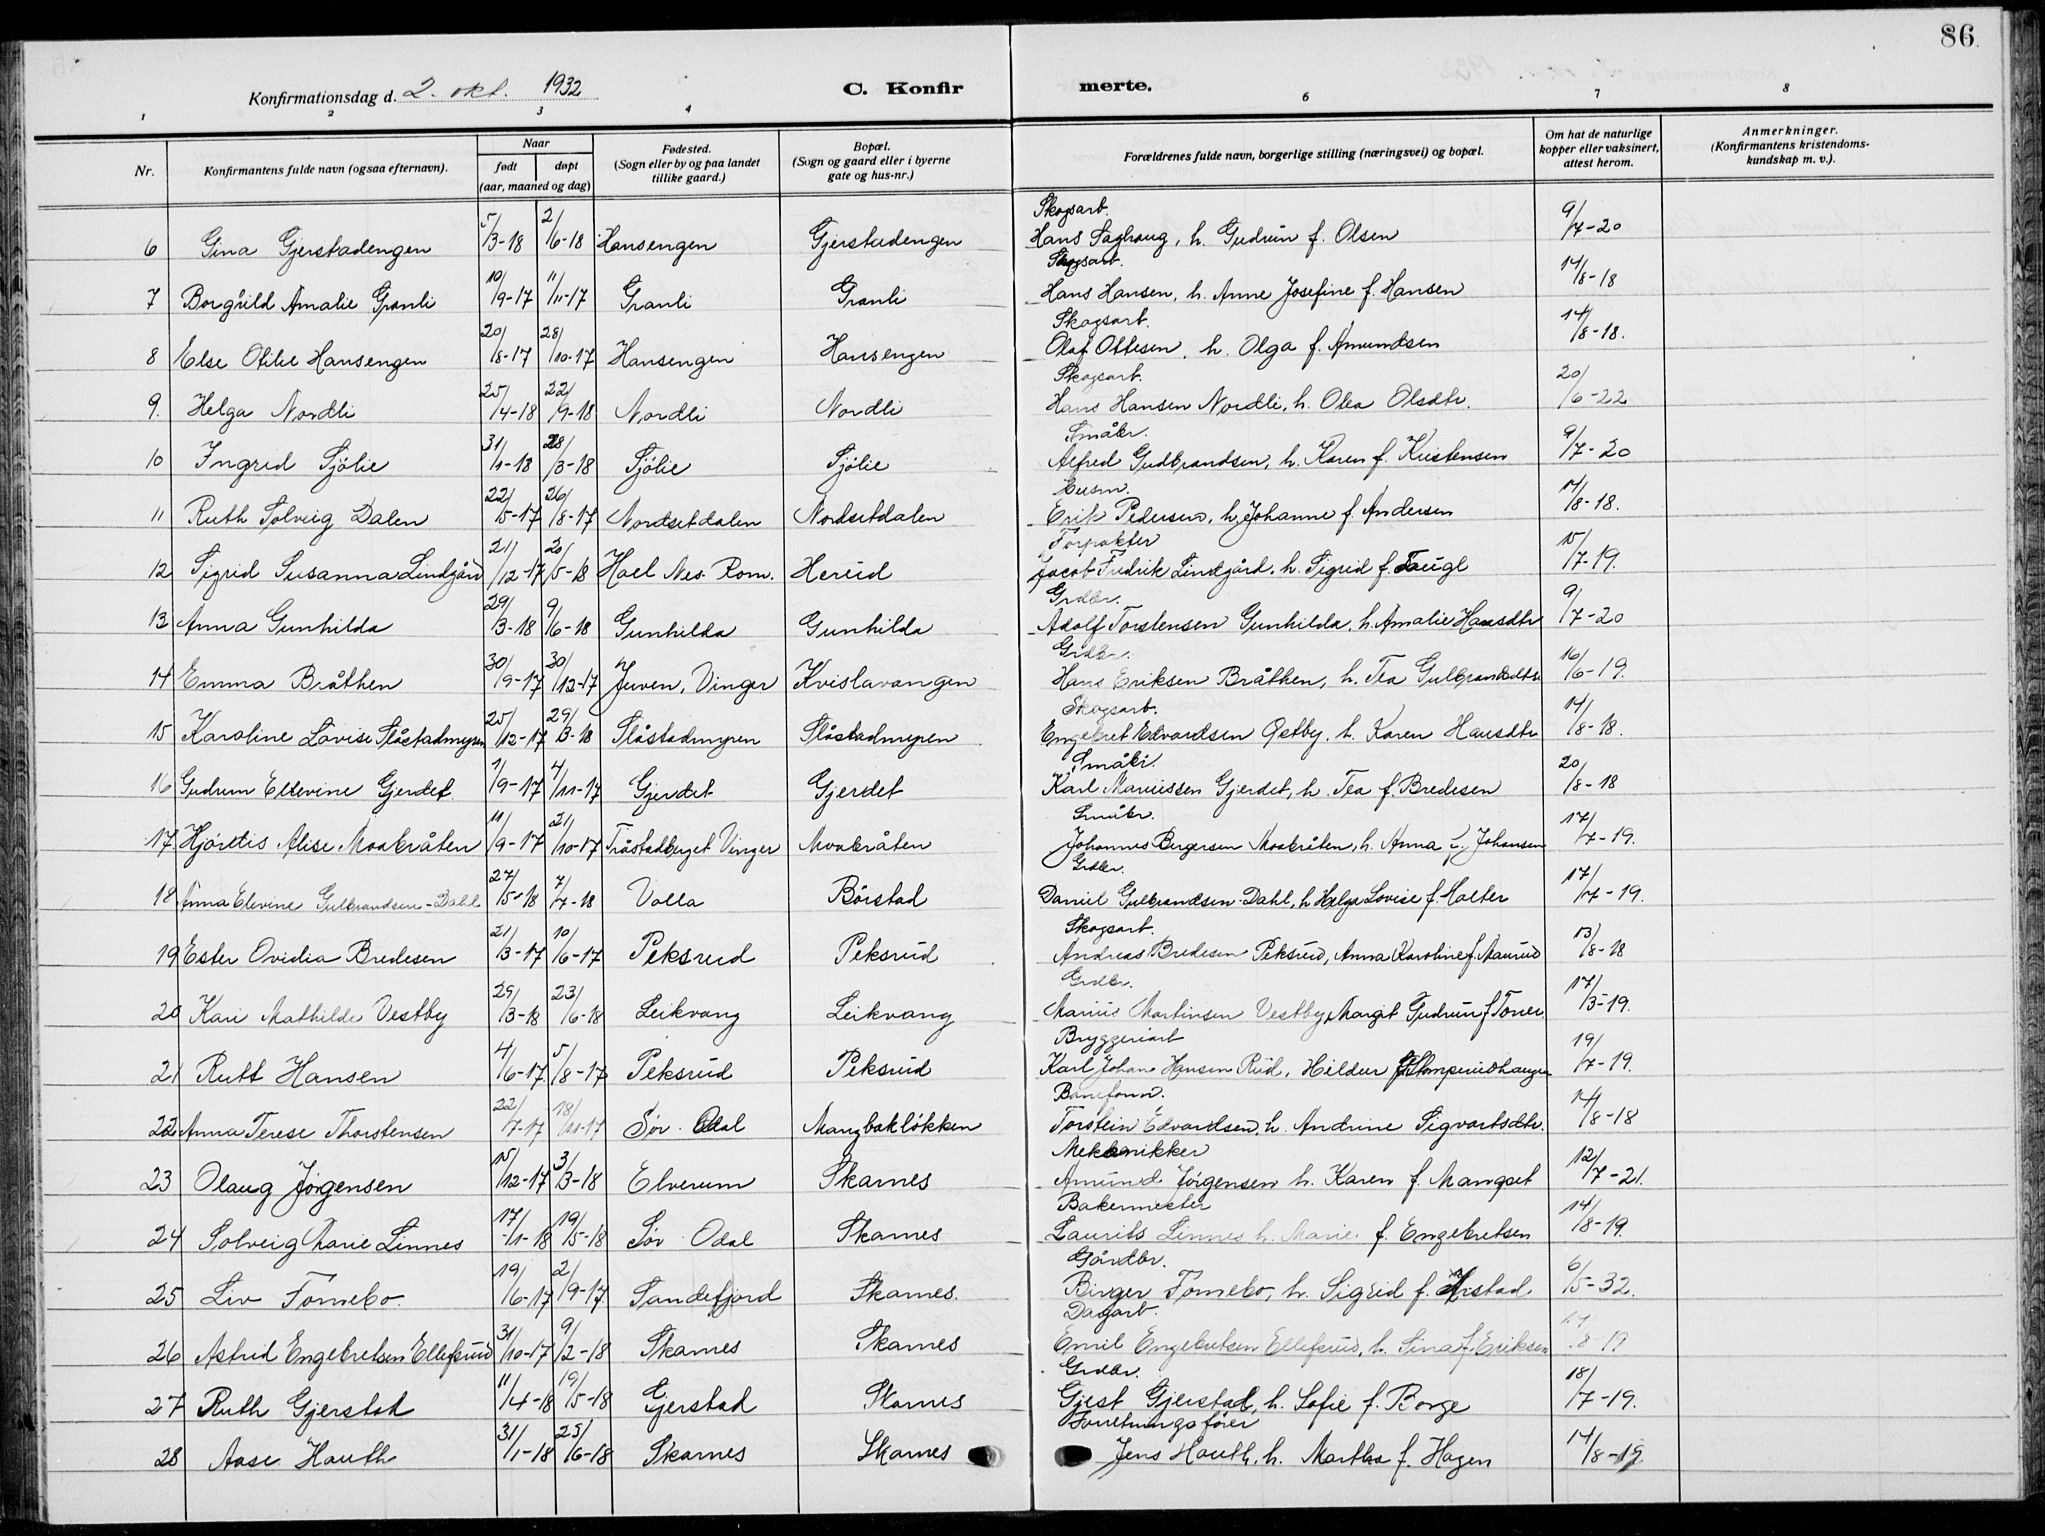 86.
Konfirmationsdag d. 2. okt. 1932
C. Konfir merte.
1 2 3 4 6 7 8
Nr. Konfirmantens fulde navn (ogsaa efternavn). Naar født døpt (aar, maaned og dag) Fødested. (Sogn eller by og paa landet tillike gaard.) Bopæl. (Sogn og gaard eller i byerne gate og hus-nr.) Forældrenes fulde navn, borgerlige stilling (næringsvei) og bopæl. Om hat de naturlige kopper eller vaksinert, attest herom. Anmerkninger. (Konfirmantens kristendoms-kundskap m. v.).
Skogsarb.
6 Gina Gjerstadengen 5/3-18 2/6-18 Hansengen Gjerstadengen Hans Saghaug, h. Gudrun f. Olsen 9/7-20
Skogsarb.
7 Borghild Amalie Granli 10/9-17 11/11-17 Granli Granli Hans Hansen, h. Anne Josefine f. Hansen 14/8-18
Skogsarb.
8 Else Otilie Hansengen 20/8-17 28/10-17 Hansengen Hansengen Olaf Ottesen, h. Olga f. Amundsen 14/8-18.
Skogsarb.
9. Helga Nordli 25/4-18 22/9-18 Nordli Nordli Hans Hansen Nordli, h. Olea Olsdtr. 20/6-22
Småbr.
10 Ingrid Sjölie 31/1-18 28/3-18 Sjölie Sjölie Alfred Gudbrandsen, h. Karen f. Kristensen 9/7-20
Husm.
11 Ruth Solveig Dalen 22/5-17 26/8-17 Nordsetdalen Nordsetdalen Erik Pedersen, h. Johanne f. Andersen 14/8-18.
Forpakter
12 Sigrid Susanna Lindgård 21/12-17 20/5-18 Hoel Nes. Rom. Herud Jacob Fredrik Lindgård. h. Sigrid f. Faugl 15/7-19.
Grdbr.
13 Anna Gunhilda 29/3-18 9/6-18 Gunhilda Gunhilda Adolf Torstensen Gunhilda, h. Amalie Hansdtr 9/7-20
Grdbr.
14 Emma Bråthen 30/9-17 30/12-17 Juven, Vinger Kvislavangen Hans Eriksen Bråthen, h. Tea Gulbrandsdtr 16/6-19.
Skogsarb.
15 Karoline Lovise Slåstadmyren 25/12-17 29/3-18 Slåstadmyren Slåstadmyren Engebret Edvardsen Østby, h. Karen Hansdtr 14/8-18.
Småbr.
16 Gudrun Ellevine Gjerdet 1/9-17 4/11-17 Gjerdet Gjerdet Karl Mariussen Gjerdet, h. Tea f. Bredesen 20/8-18
Småbr.
17 Hjördis Alise Moabråten 11/9-17 21/10-17 Tråstadberget Vinger Moabråten Johannes Birgersen Moabråten, h. Anna f. Johansen 17/7-19.
Grdbr.
18 Anna Elevine Gulbrandsen-Dahl 27/5-18 7/7-18 Volla Börstad Daniel Gulbrandsen-Dahl, h Helga Lovise f. Holter 17/7-19.
Skogsarb.
19 Ester Ovidia Bredesen 21/3-17 10/6-17 Peksrud Peksrud Andreas Bredesen Peksrud, Anna Karoline f. Aaurud 13/8-18
Grdbr.
20 Kari Mathilde Vestby 29/3-18 23/6-18 Leikvang Leikvang Marius Martinsen Vestby, Margit Gudrun f Toner. 17/3-19.
Bryggeriarb
21 Rutt Hansen 4/6-17 5/8-17 Peksrud Peksrud Karl Johan Hansen Rud, Hildur f. Stomperudhaugen 19/7-19.
Baneform.
22 Anna Terese Thorstensen 22/7-17 18/11-17 Sör-Odal Mangbakløkken Torstein Edvardsen, h. Andrine Sigvartsdtr. 14/8-18
Mekanikker
23 Olaug Jörgensen 15/12-17 3/3-18 Elverum Skarnes Amund Jörgensen h. Karen f. Mangset 12/7-21.
Bakermester
24 Solveig Marie Linnes 17/1-18 19/5-18 Sör-Odal Skarnes Laurits Linnes h. Marie f. Engebretsen 14/8-19.
Gårdbr.
25 Liv Fornebo. 19/6-17 2/9-17 Sandefjord Skarnes. Birger Fornebo, h. Sigrid f. Arstad 6/5-32.
Dagarb.
26 Astrid Engebretsen Ellefsrud 31/10-17 9/2-18 Skarnes Skarnes Emil Engebretsen Ellefsrud, h. Sina f. Eriksen 8-19
Grdbr.
27 Ruth Gjerstad 11/4-18 19/5-18 Gjerstad Skarnes Gjest Gjerstad, h. Sofie f. Borge 18/7-19.
Forretningsförer
28 Aase Hauth 31/1-18 23/6-18 Skarnes Skarnes Jens Hauth, h. Martha f. Hagen 14/8-19.